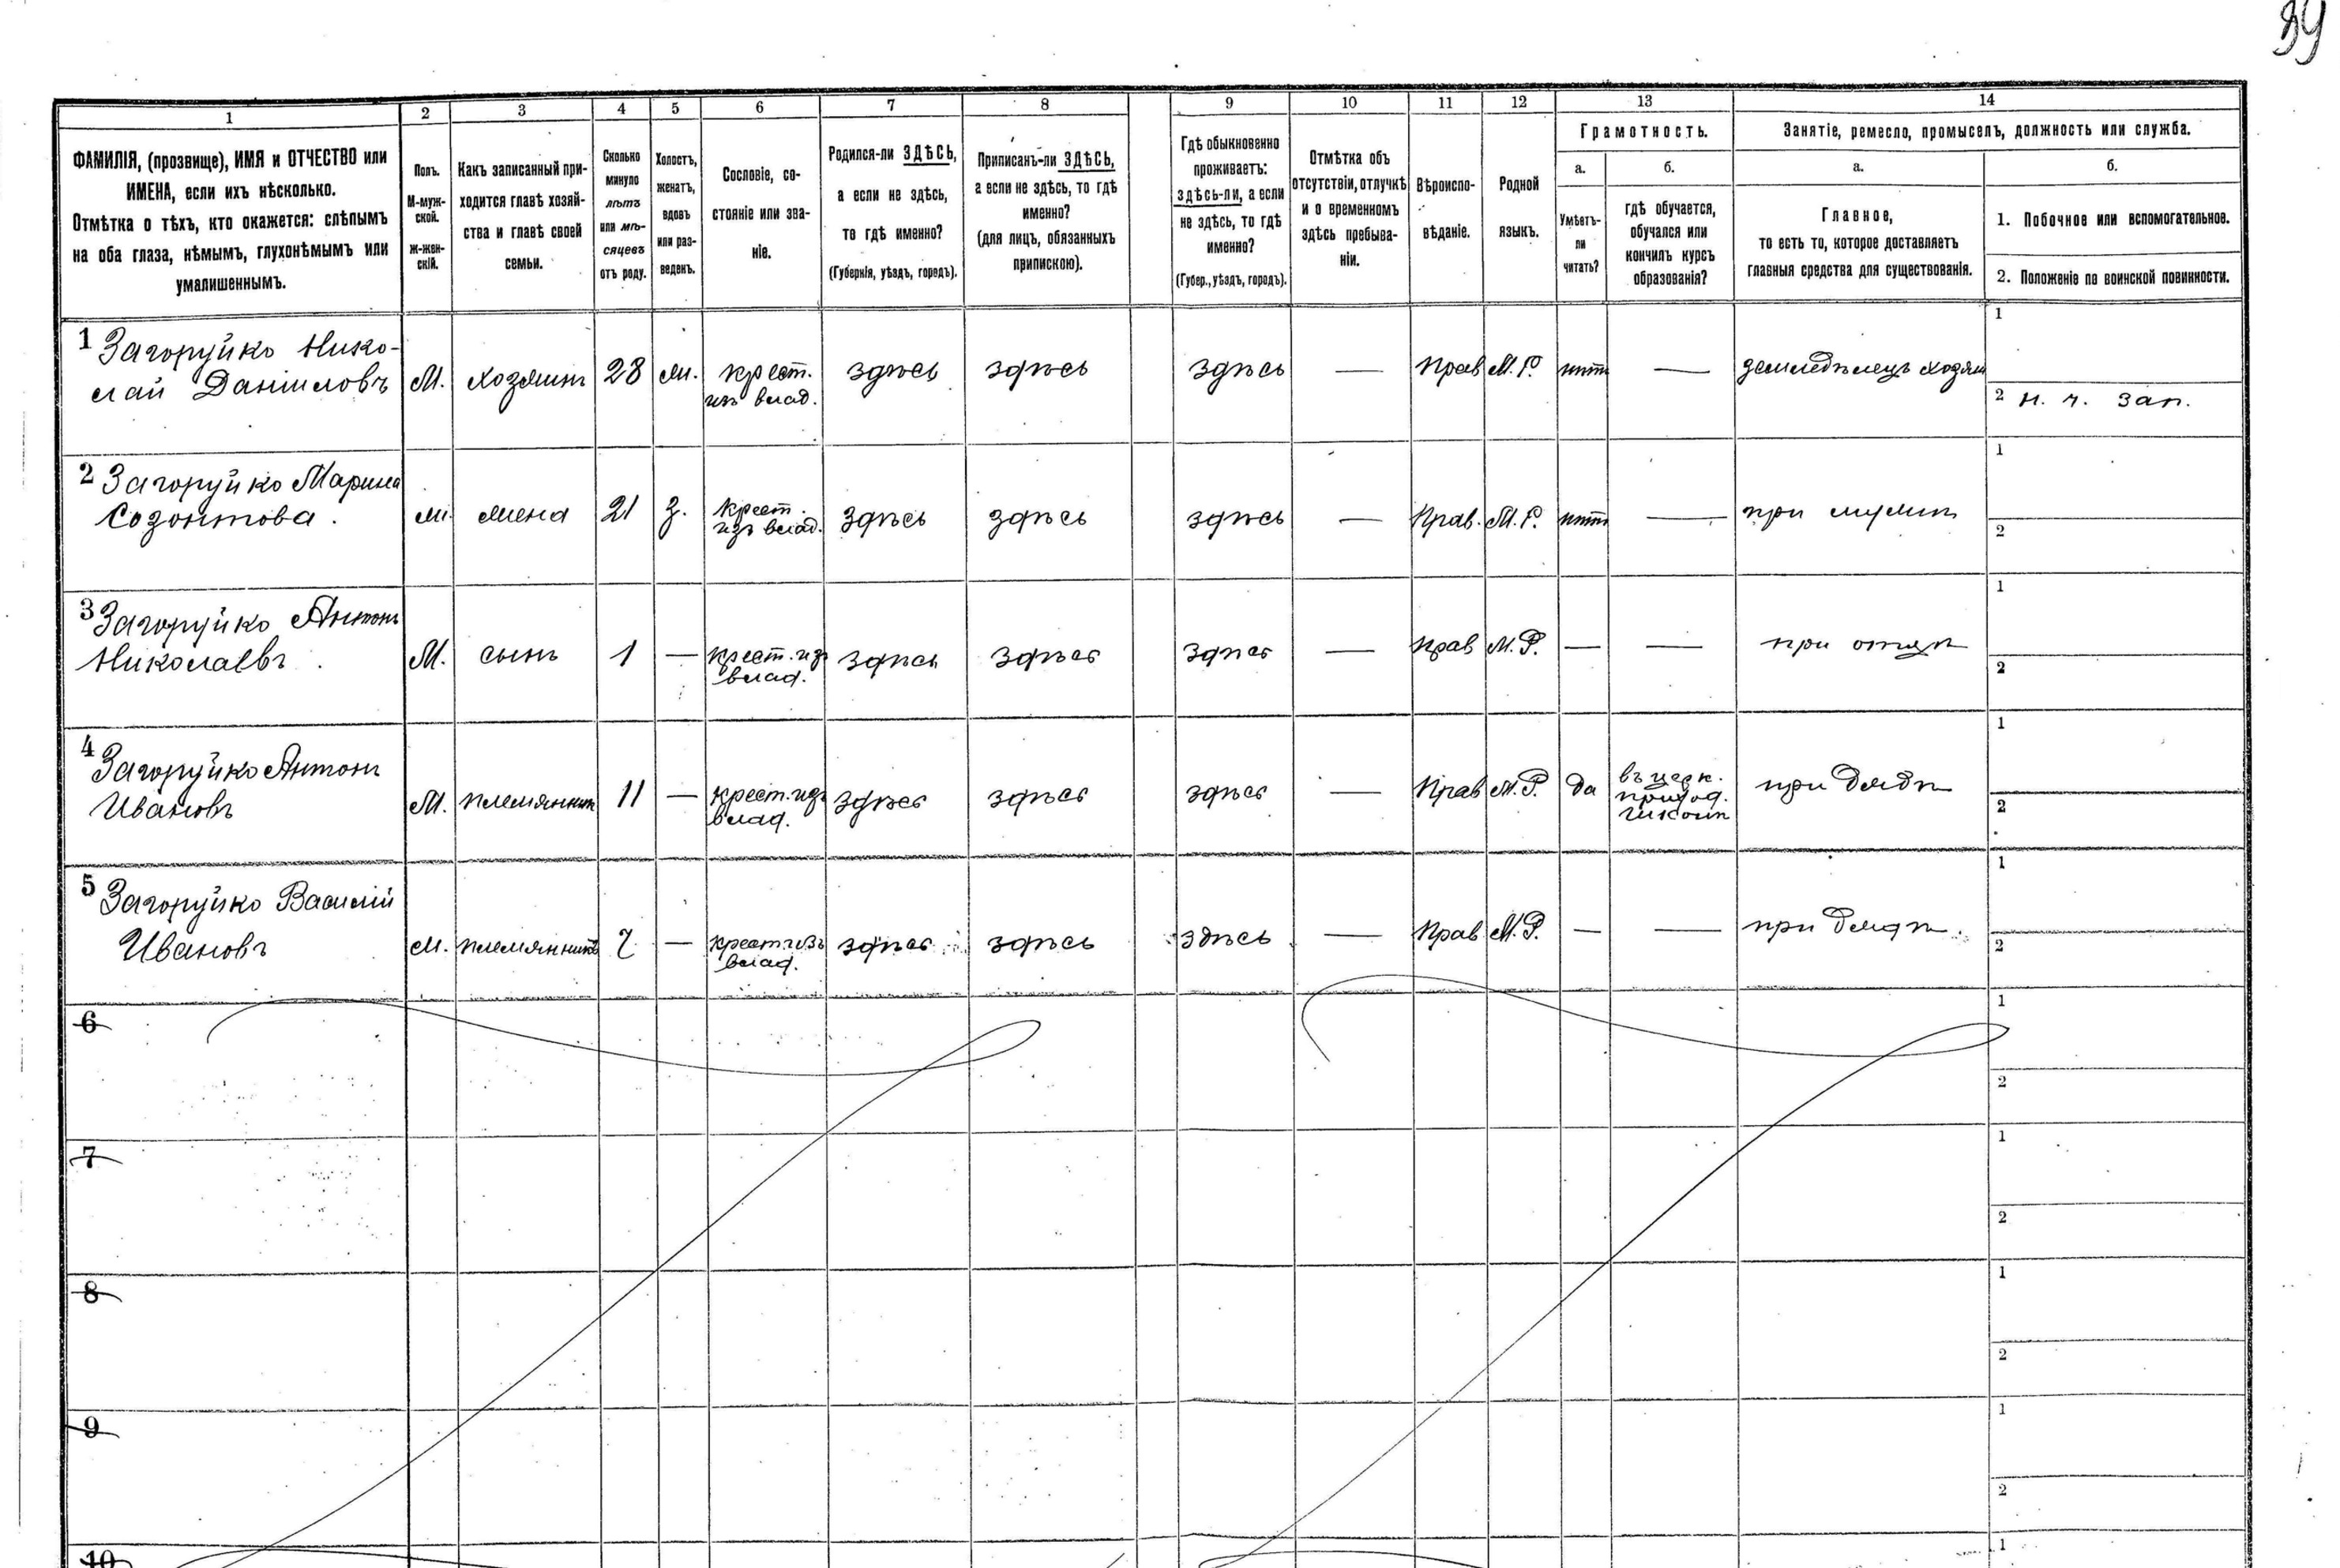 39
1 2 3 4 5 6 7 8 9 10 11 12 13 14
ФАМИЛІЯ, (прозвище), ИМЯ и ОТЧЕСТВО или
ИМЕНА, если ихъ нѣсколько.
Отмѣтка о тѣхъ, кто окажется: слѣпымъ
на оба глаза, нѣмымъ, глухонѣмымъ или
умалишеннымъ.
Полъ.
М-муж-
ской.
Ж-жен-
скій.
Какъ записанный при-
ходится главѣ хозяй-
ства и главѣ своей
семьи.
Сколько
минуло
лѣтъ
или мѣ-
сяцевъ
отъ роду.
Холостъ,
женатъ,
вдовъ
или раз-
веденъ.
Сословіе, со-
стояніе или зва-
ніе.
Родился-ли ЗДѢСЬ,
а если не здѣсь,
то гдѣ именно?
(Губернія, уѣздъ, городъ).
Приписанъ-ли ЗДѢСЬ,
а если не здѣсь, то гдѣ
именно?
(для лицъ, обязанныхъ
припискою).
Гдѣ обыкновенно
проживаетъ:
здѣсь-ли, а если
не здѣсь, то гдѣ
именно?
(Губер., уѣздъ, городъ).
Отмѣтка объ
отсутствіи, отлучкѣ
и о временномъ
здѣсь пребыва-
ніи.
Вѣроиспо-
вѣданіе.
Родной
языкъ.
Грамотность.
а.
Умѣетъ-
ли
читать?
б.
гдѣ обучается,
обучался или
кончилъ курсъ
образованія?
Занятіе, ремесло, промыселъ, должность или служба.
а.
Главное,
то есть то, которое доставляетъ
главныя средства для существованія.
б.
1. Побочное или вспомогательное.
2. Положеніе по воинской повинности.
1 Загоруйко Нико-
лай Даніиловъ М. хозяинъ 28 ж. крест. здѣсь здѣсь здѣсь — Прав М.Р. нѣтъ — земледѣлецъ хозяи 1
изъ влад. 2 н. ч. зап.
2 Загоруйко Марина
Созонтова. ж. жена 21 з. крест. здѣсь здѣсь здѣсь — Прав. М.Р. нѣтъ — при мужѣ 1
изъ влад. 2
3 Загоруйко Антонъ
Николаевъ. М. сынъ 1 — крест. изъ здѣсь здѣсь здѣсь — Прав М.Р. — — при отцѣ 1
влад. 2
4 Загоруйко Антонъ
Ивановъ М. племянникъ 11 — крест. изъ здѣсь здѣсь здѣсь — Прав М.Р. да въ церк. при дядѣ 1
влад. приход. 2
школѣ
5 Загоруйко Василій
Ивановъ М. племянникъ 7 — крест. изъ здѣсь здѣсь здѣсь — Прав М.Р. — — при дядѣ. 1
влад. 2
6 1
2
7 1
2
8 1
2
9 1
2
10 1